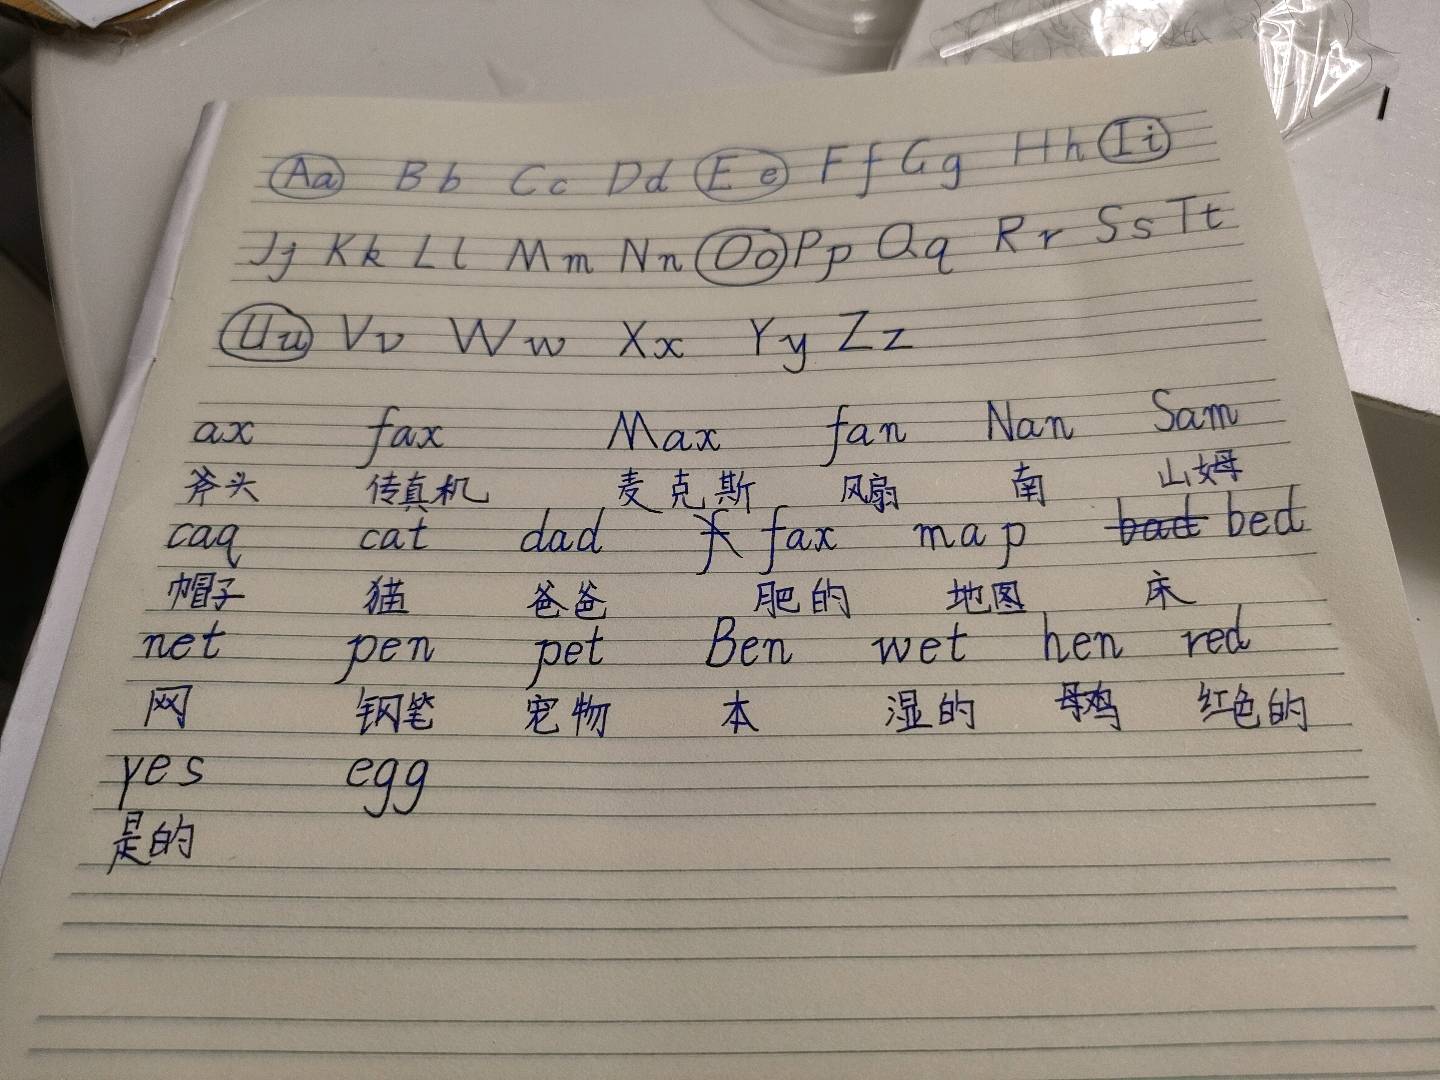 Aa Bb Cc Dd Ee Ff Gg Hh Ii
Jj Kk Ll Mm Nn Oo Pp Qq Rr Ss Tt
Uu Vv Ww Xx Yy Zz
ax fax Max fan Nan Sam
斧头 传真机 麦克斯 风扇 南 山姆
caq cat dad f fax map bad bed
帽子 猫 爸爸 肥的 地图 床
net pen pet Ben wet hen red
网 钢笔 宠物 本 湿的 母鸡 红色的
yes egg
是的